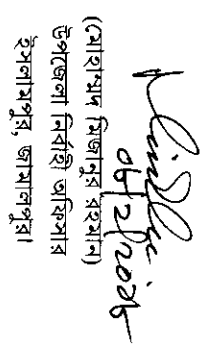 ০৮/২/২০২৬
(মোহাম্মদ মিজানুর রহমান)
উপজেলা নির্বাহী অফিসার
ইসলামপুর, জামালপুর।